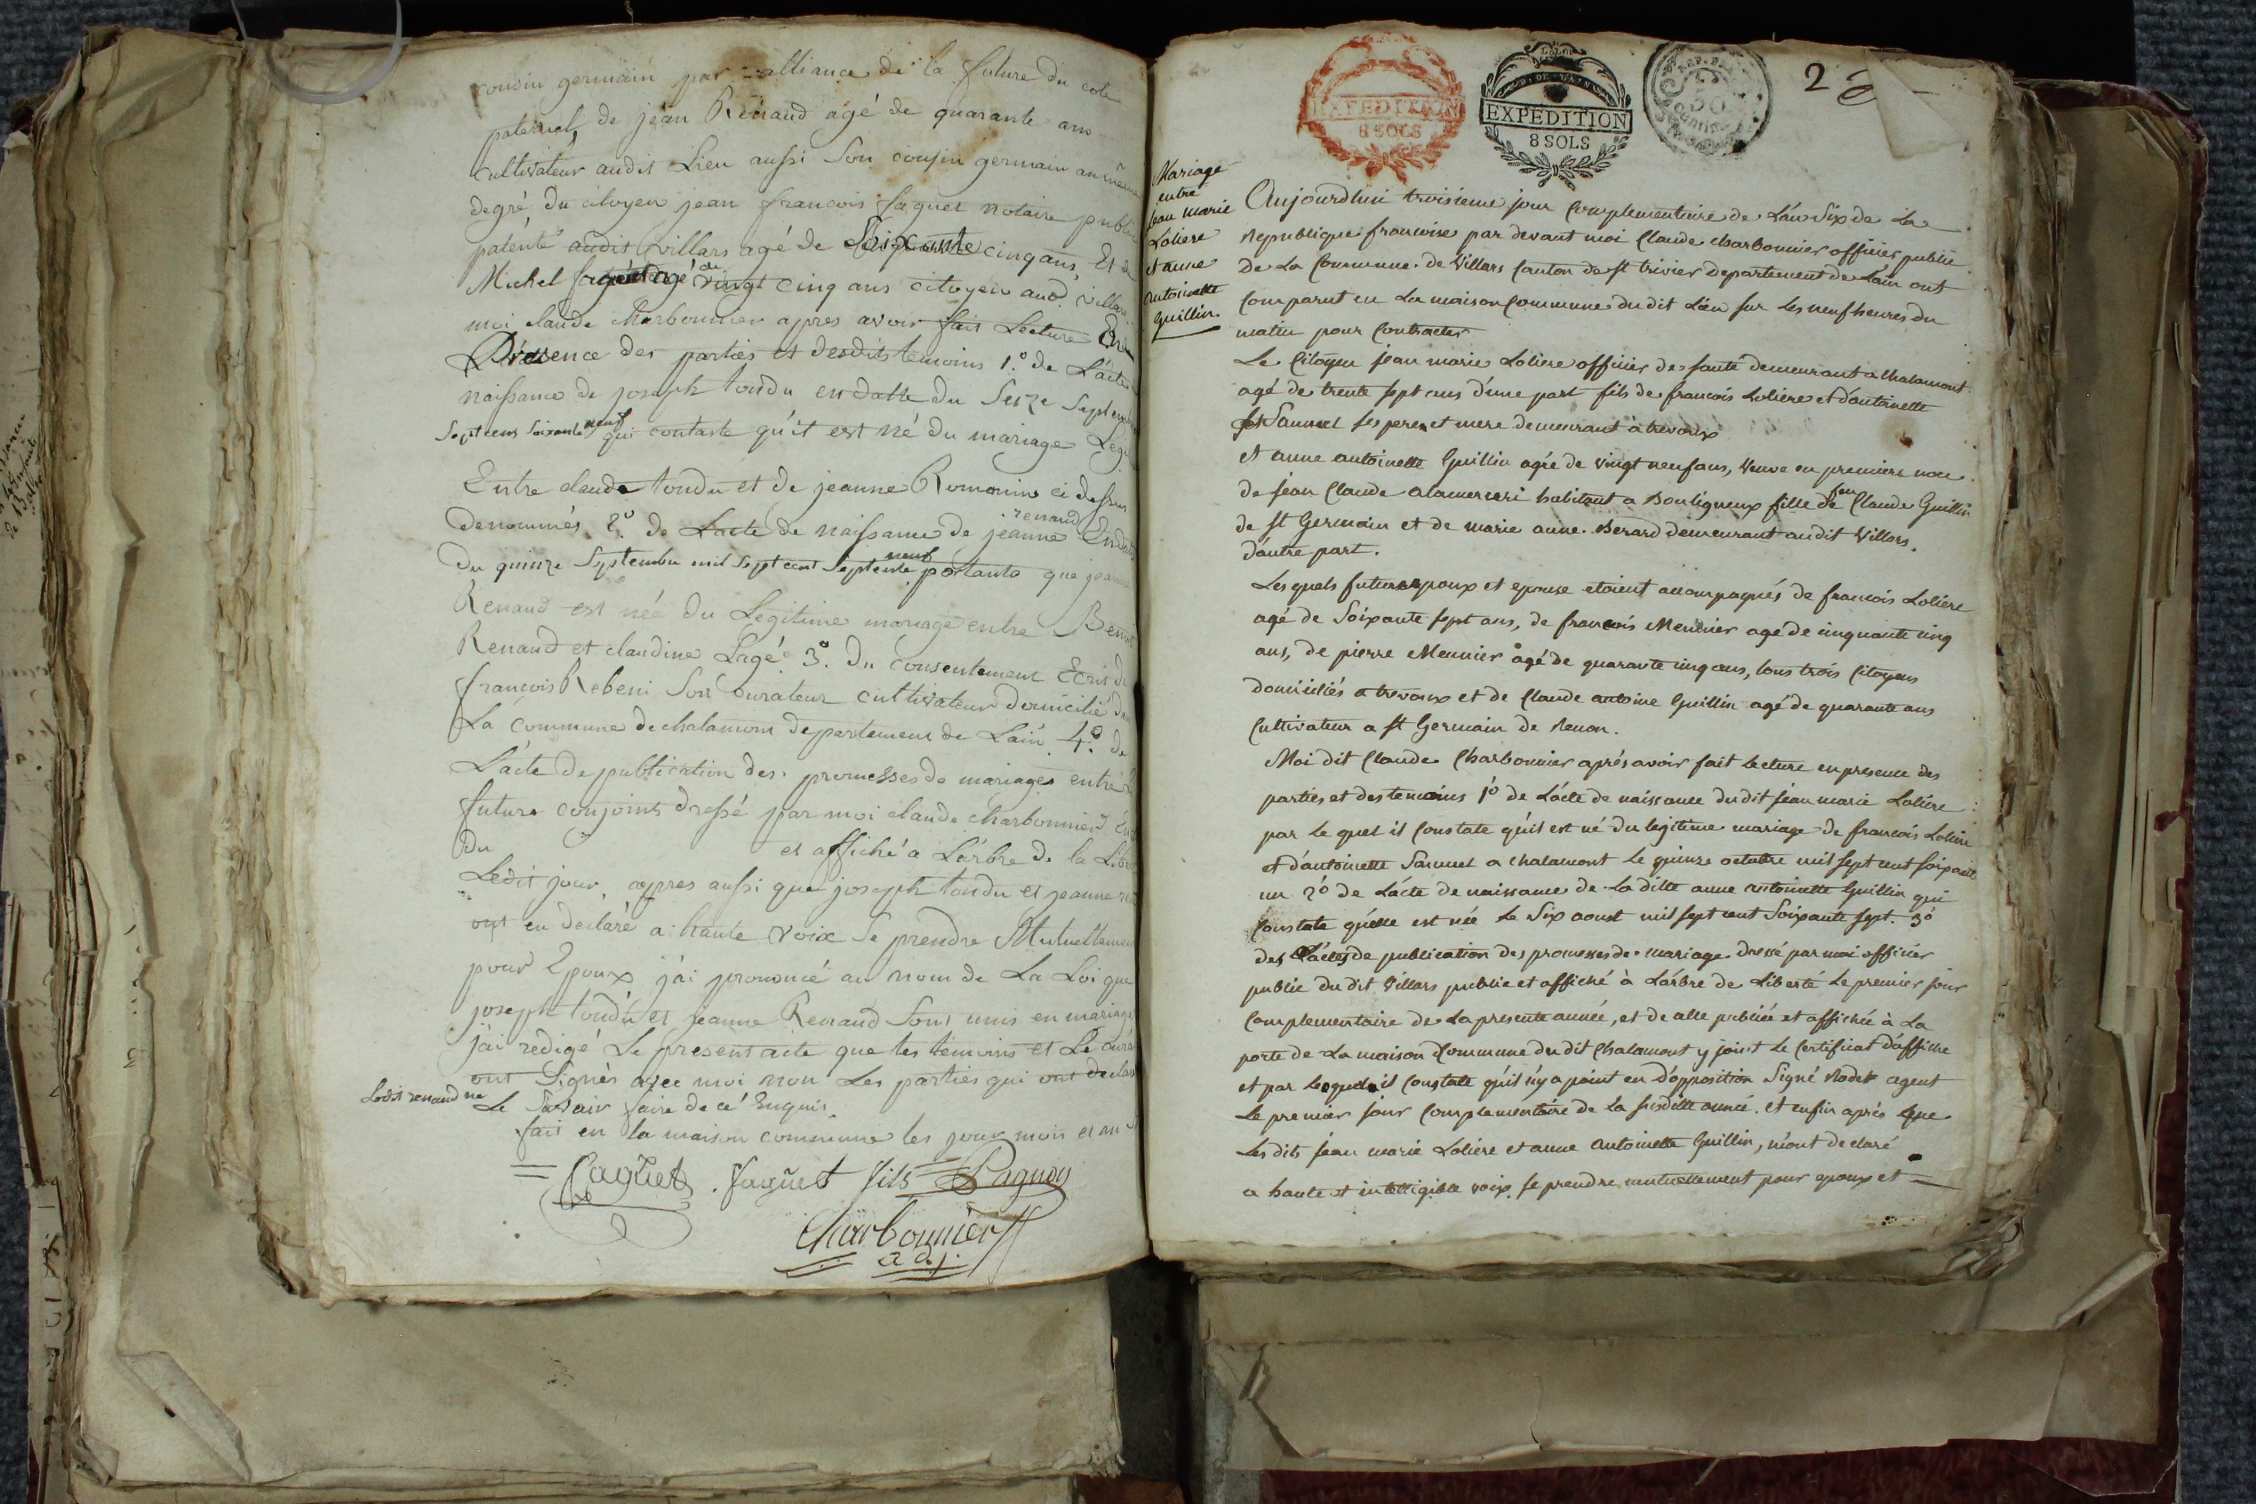 cousin germain par alliance de la future du coté
paternel, de jean Renaud agé de quarante ans
Cultivateur audit Lieu aussi Son cousin germain au même
degré, du citoyen jean francois faguet notaire public
patenté audit villars agé de Soixante cinq ans, Et de
Michel faguet agé de vingt cinq ans citoyen aud. villars
moi claude Charbonnier apres avoir fait Lecture En
Présence des parties et desdits temoins 1.º de L'acte
naissance de joseph tondu en datte du Seize Septembre
Sept cens Soixante neuf qui contaste qu'it est né du mariage Legi
Entre claude tondu et de jeanne Romanin ci dessus
denommés. 2.º de Lacte de naissance de jeanne renaud En date
du quinze Septembre mil sept cent Septente neuf portante que jeanne
Renaud est née du Legitime mariage entre Benoit
Renaud et claudine Lagé 3.º du consentement Ecrit de
francois Rebeni Son curateur cultivateur domicilié dans
La commune de chalamont departement de Lain 4.º de
L'acte de publication des promesses de mariages entre
future conjoints dressé par moi claude Charbonnier En
du et affiché a L'arbre de la Liberté
Ledit jour, apres aussi que joseph tondu et jeanne
ont eu declaré a haute voix Se prendre Mutuellement
pour Epoux j'ai prononcé au nom de La Loi que
joseph tondu et jeanne Renaud Sont unis en mariage
j'ai redigé Le present acte que les témoins et Le curateur
ont Signés avec moi non Les parties qui ont declaré
Ledit renaud ne
Le Savoir faire de ce Enquis.
fait en la maison commune les jour mois et an
faguet. faguet fils Pagnon
Charbonnier
adj.
EXPEDITION
8 SOLS
LA LOI
EXPEDITION
8 SOLS
REP. FRA
50
Centimes
2
Mariage
entre
jean marie
Loliere
et anne
antoinette
Guillin.
Aujourdhui troisieme jour Complementaire de L'an Six de La
Republique francoise par devant moi Claude Charbonnier officier public
de La Commune de Villars Canton de st trivier departement de L'ain ont
Comparut en La maison Commune du dit Lieu sur Les neuf heures du
matin pour Contracter
Le Citoyen jean marie Loliere officier de santé demeurant a chalamont
agé de trente sept ans d'une part fils de francois Loliere et d'antoinette
Samuel ses peres et mere demeurant à trevoux
et anne antoinette Guillin agée de vingt neuf ans, veuve en premiere noce
de jean Claude alamerceri habitant a Bouligneux fille de feu Claude Guillin
de st Germain et de marie anne Berard demeurant audit Villars.
d'autre part.
Lesquels futurs epoux et epouse etoient accompagnés de francois Loliere
agé de Soixante sept ans, de francois Meunier agé de cinquante cinq
ans, de pierre Meunier agé de quarante cinq ans, tous trois Citoyens
domiciliés a trevoux et de Claude antoine Guillin agé de quarante ans
Cultivateur a st Germain de Renon.
Moi dit Claude Charbonnier aprés avoir fait Lecture en presence des
parties et des temoins 1º de L'acte de naissance du dit jean marie Loliere
par Le quel il Constate qu'il est né du legitime mariage de francois Loliere
et d'antoinette Samuel a chalamont Le quinze octobre mil sept cent soixante
un 2º de L'acte de naissance de La ditte anne antoinette Guillin qui
Constate qu'elle est née Le Six aoust mil sept cent Soixante sept. 3º
des L'actes de publication des promesses de mariage dressé par moi officier
public du dit Villars publie et affiché à L'arbre de Liberté Le premier jour
Complementaire de La presente année, et de alle publiée et affichée à La
porte de La maison Commune du dit Chalamont y joint Le Certificat d'affiche
et par Lequel il Constate qu'il n'y a point eu d'opposition Signé Rodet agent
Le premier jour Complementaire de La susditte année. Et enfin aprés que
Les dits jean marie Loliere et anne antoinette Guillin, m'ont declaré
a haute et intelligible voix se prendre mutuellement pour epoux et